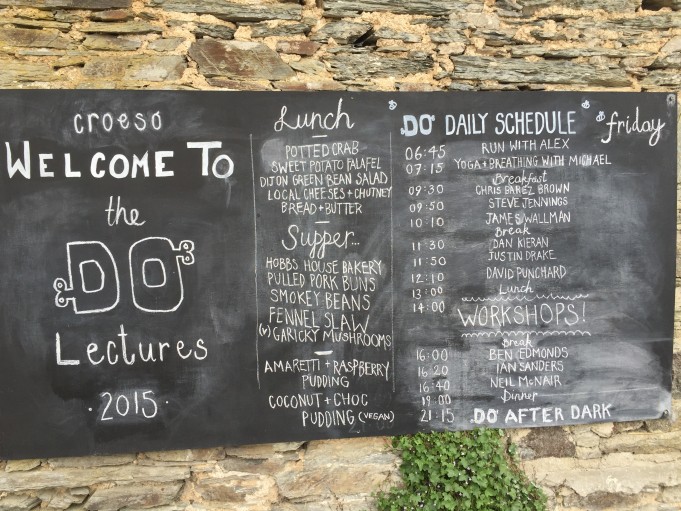 croeso
WELCOME TO
the
DO
Lectures
·2015·
Lunch
POTTED CRAB
SWEET POTATO FALAFEL
DIJON GREEN BEAN SALAD
LOCAL CHEESES + CHUTNEY
BREAD + BUTTER
Supper...
HOBBS HOUSE BAKERY
PULLED PORK BUNS
SMOKEY BEANS
FENNEL SLAW
(v) GARICKY MUSHROOMS
AMARETTI + RASPBERRY
PUDDING
COCONUT + CHOC
PUDDING (VEGAN)
DO DAILY SCHEDULE friday
06:45 RUN WITH ALEX
07:15 YOGA + BREATHING WITH MICHAEL
Breakfast
09:30 CHRIS BAREZ BROWN
09:50 STEVE JENNINGS
10:10 JAMES WALLMAN
Break
11:30 DAN KIERAN
11:50 JUSTIN DRAKE
12:10 DAVID PUNCHARD
13:00 Lunch
14:00 WORKSHOPS!
Break
16:00 BEN EDMONDS
16:20 IAN SANDERS
16:40 NEIL McNAIR
19:00 Dinner
21:15 DO AFTER DARK